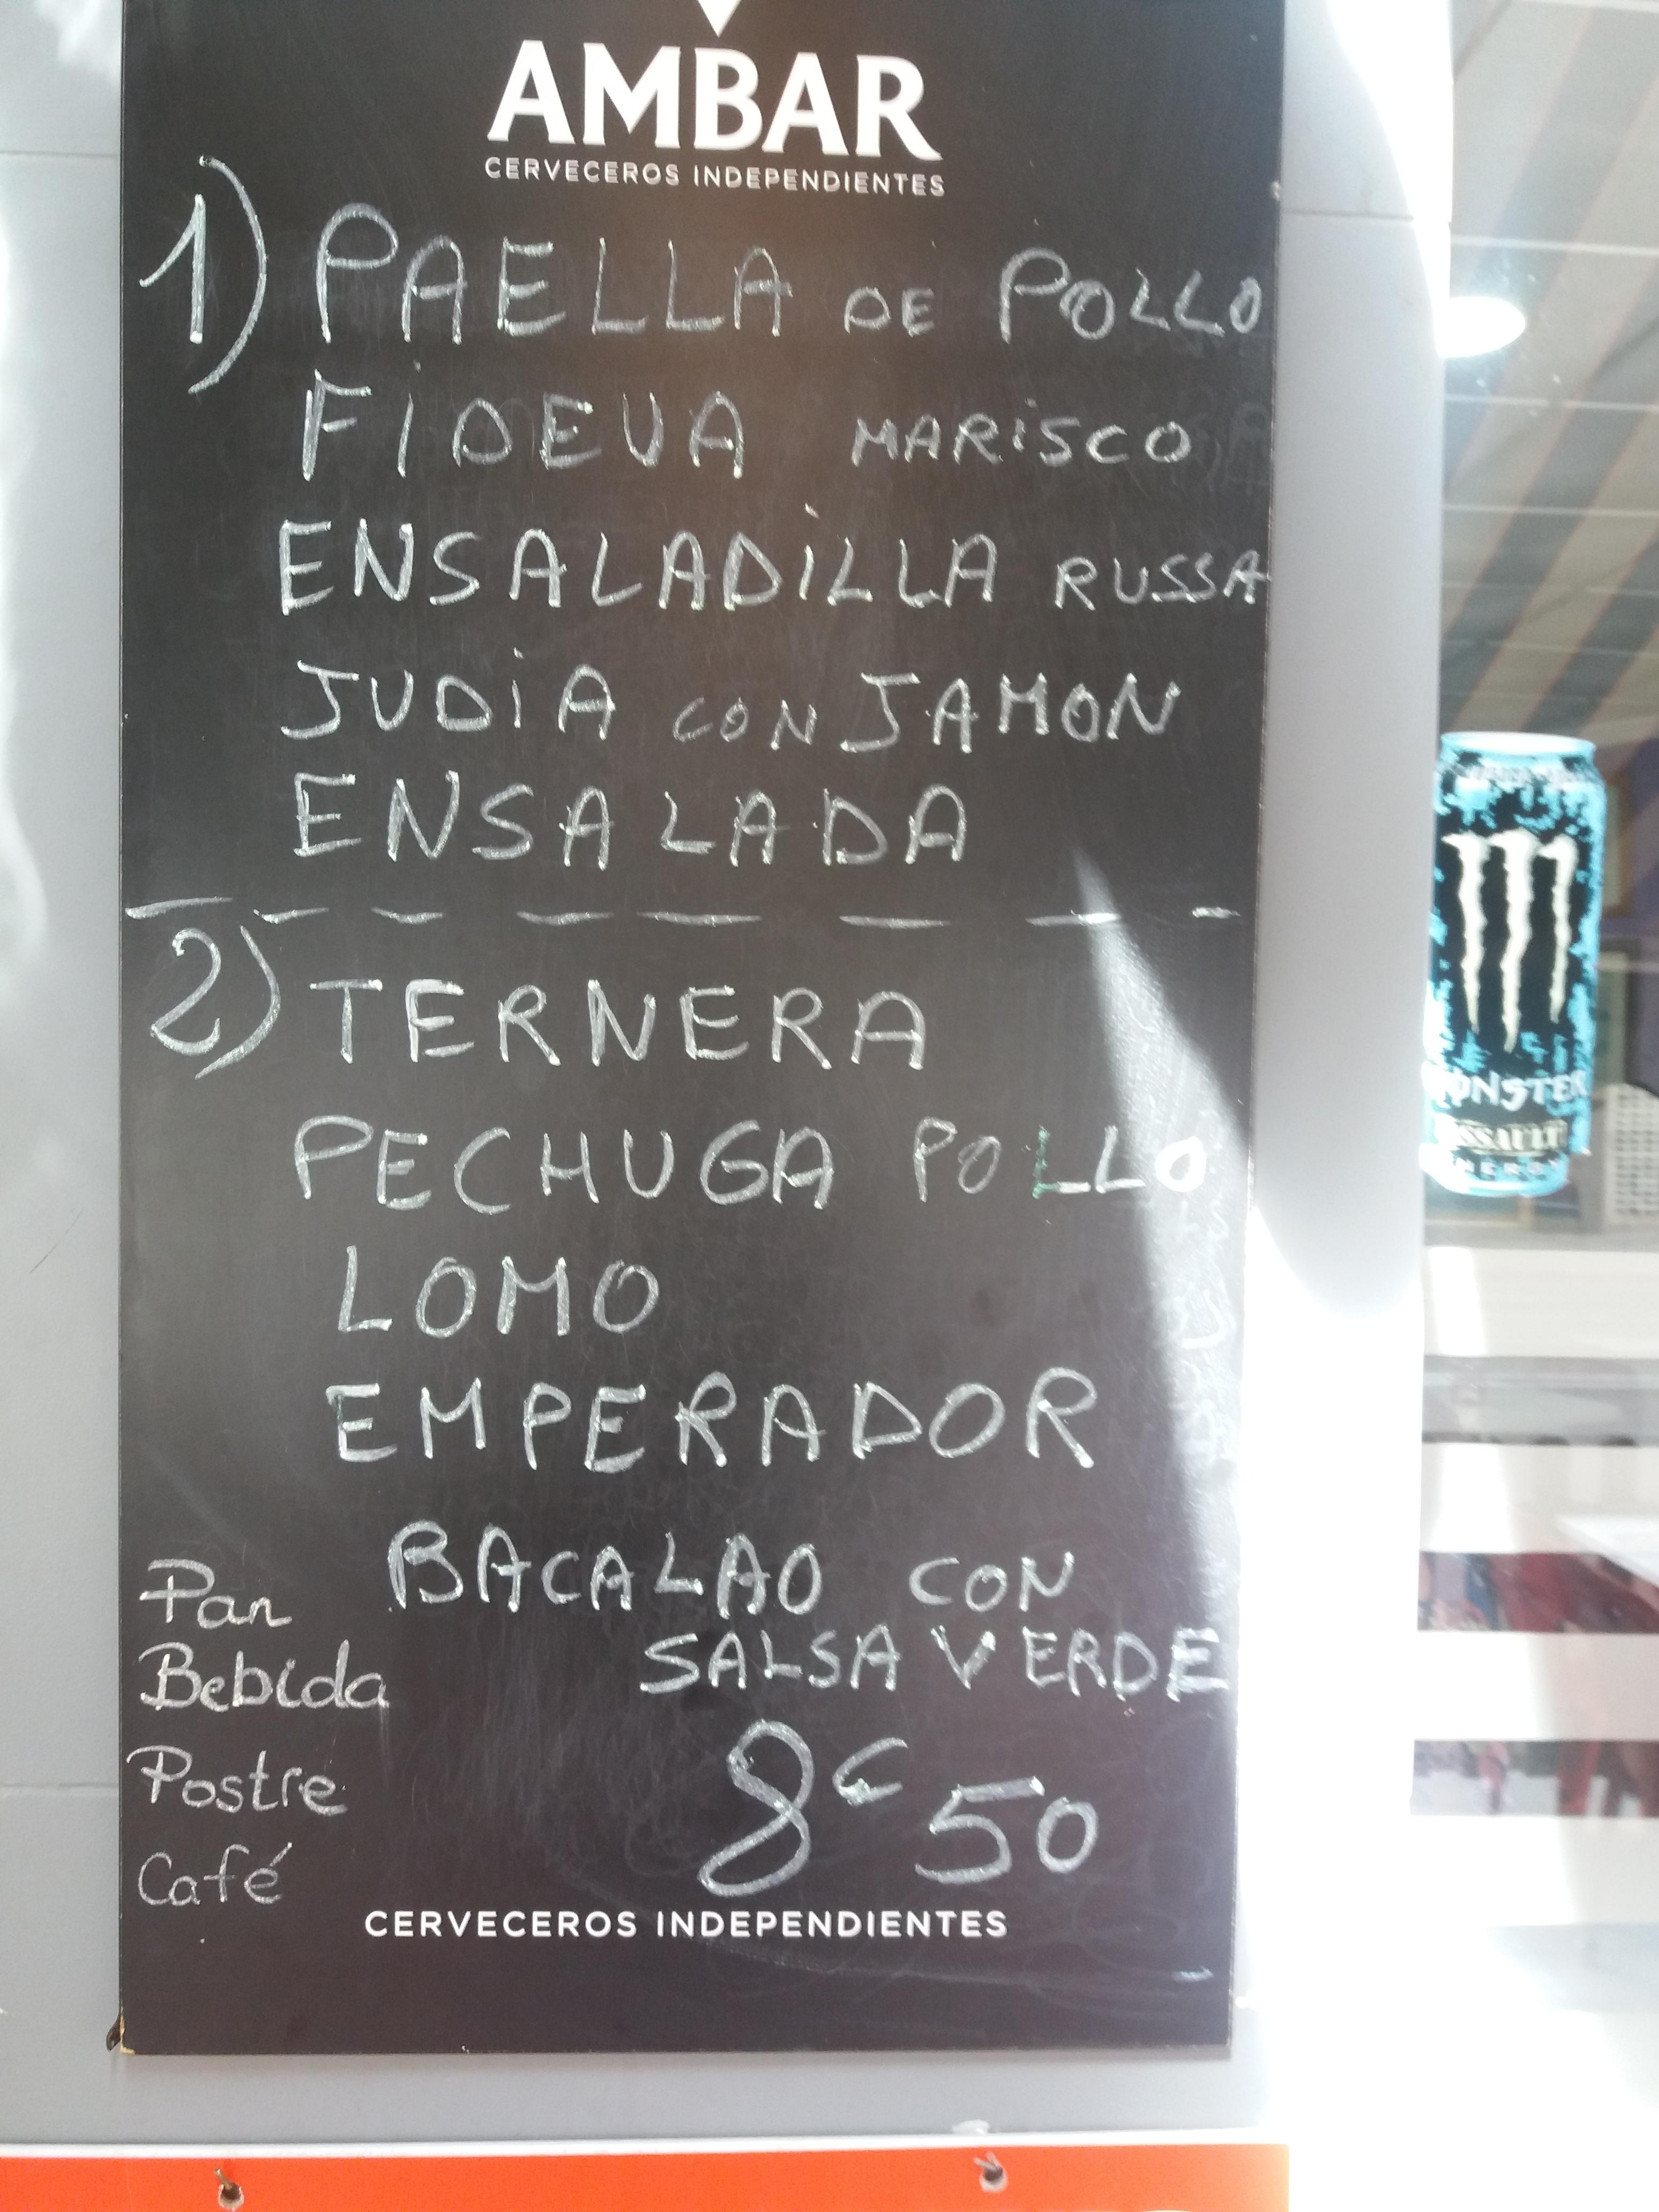 AMBAR
CERVECEROS INDEPENDIENTES
1) PAELLA DE POLLO
FiDEUA MARiSCO
ENSALADiLLA RUSSA
JUDiA CON JAMON
ENSALADA
2) TERNERA
PECHUGA POLLO
LOMO
EMPERADOR
BACALAO CON
SALSA VERDE
Pan
Bebida
Postre
Café
8€50
CERVECEROS INDEPENDIENTES
MONSTER
ASSAULT
ENERGY